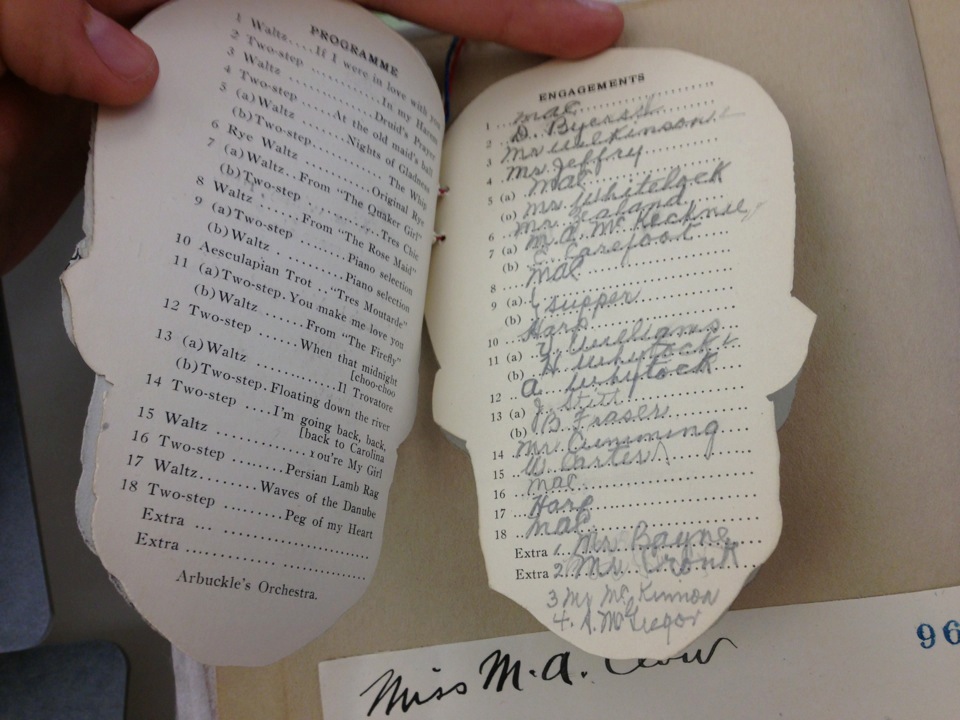 PROGRAMME
1 Waltz....If I were in love with you
2 Two-step ............In my Harem
3 Waltz ............Druid's Prayer
4 Two-step....At the old maid's ball
5 (a) Waltz ......Nights of Gladness
(b) Two-step............The Whip
6 Rye Waltz ..........Original Rye
7 (a) Waltz...From "The Quaker Girl"
(b) Two-step ............Tres Chic
8 Waltz ......From "The Rose Maid"
9 (a) Two-step .......Piano selection
(b) Waltz ..........Piano selection
10 Aesculapian Trot .."Tres Moutarde"
11 (a) Two-step. You make me love you
(b) Waltz ......From "The Firefly"
12 Two-step ......When that midnight
[choo-choo
13 (a) Waltz ..............Il Trovatore
(b) Two-step. Floating down the river
14 Two-step ....I'm going back, back,
[back to Carolina
15 Waltz .............You're My Girl
16 Two-step ........Persian Lamb Rag
17 Waltz........Waves of the Danube
18 Two-step .........Peg of my Heart
Extra ...
Extra ...
Arbuckle's Orchestra.
ENGAGEMENTS
1 Mac
2 D.
3 Mr Wilkinson
4 Mr. Jeffry
5 (a) Mac
(b) Mr. Whitelock
6 Mr. Zealand
7 (a) M. A. McKechnie
(b) Carefoot
8 Mac
9 (a) supper
(b)
10 Harp
11 (a) Williams
(b) H. Whytock
12 A. Whytock
13 (a) J. Stitt
(b) B. Fraser
14 Mr. Cumming
15 W. Carter
16 Mac
17 Harp
18 Mac
Extra 1. Mr. Bayne
Extra 2. Mr. Cronk
3 Mr McKinnon
4. A. McGregor
96
Miss M. A.